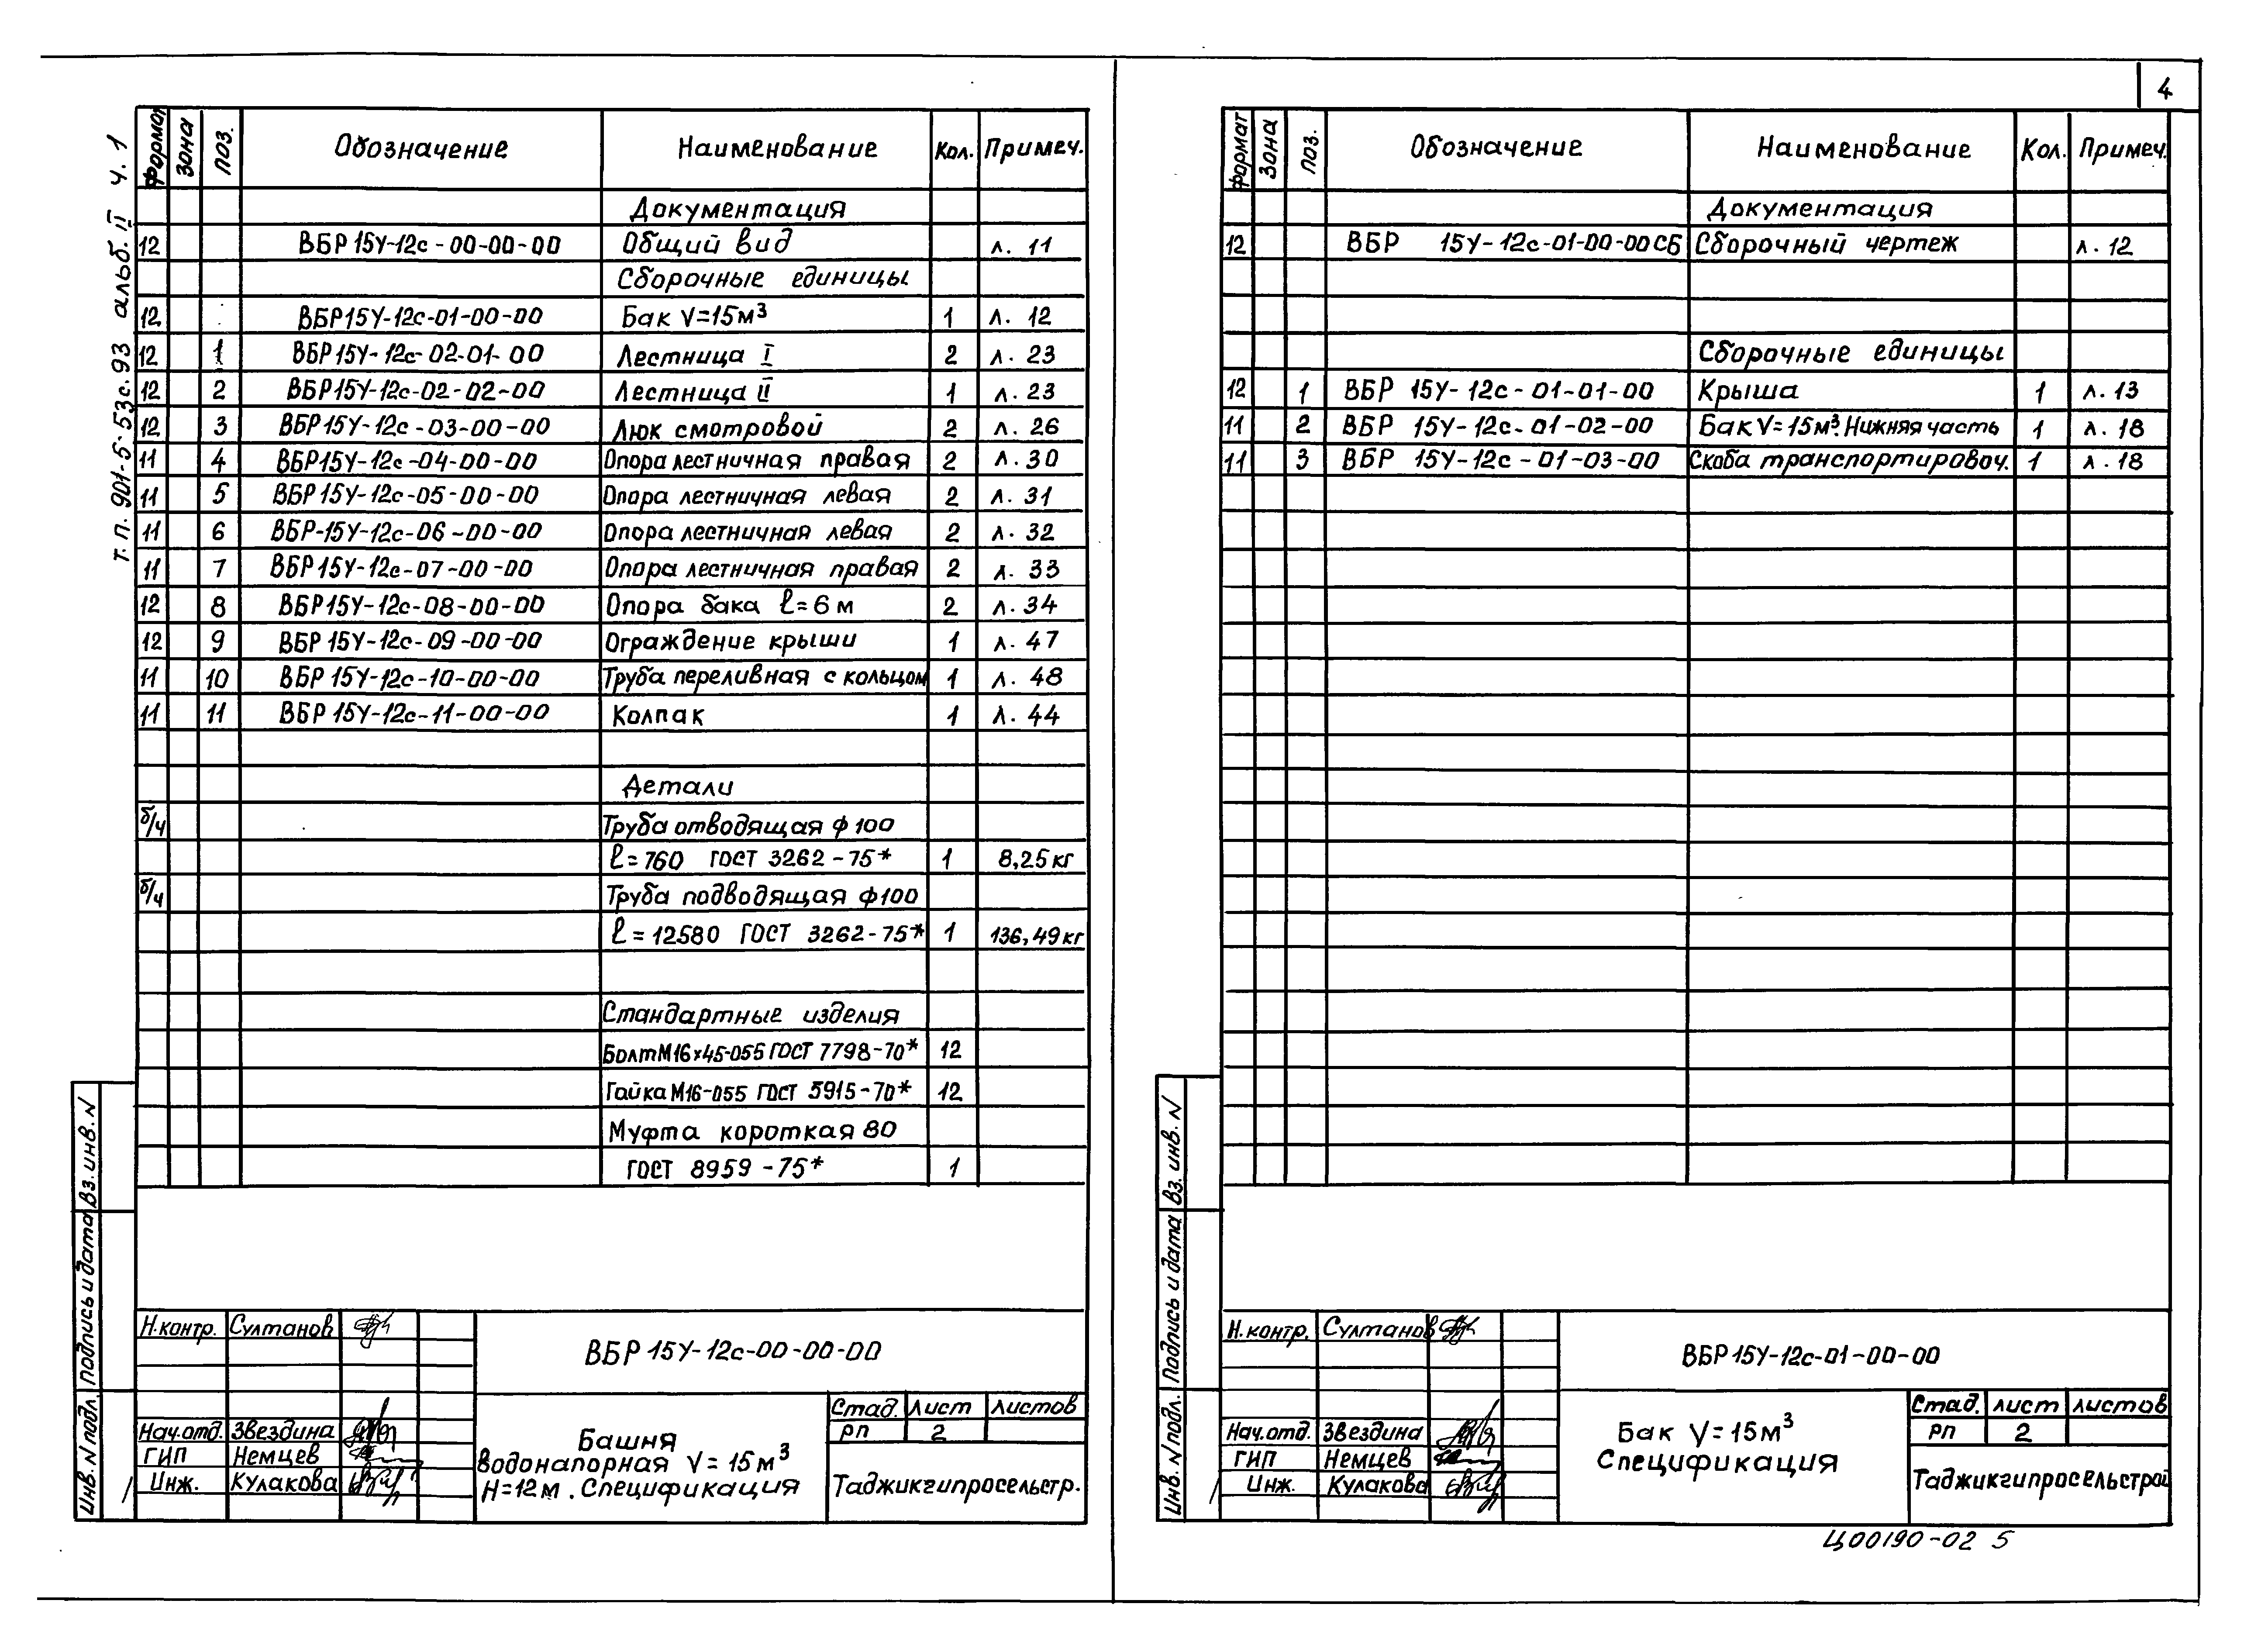 4
т.п. 901-5-53с.93 альб. II ч. 1
Формат Зона Поз. Обозначение Наименование Кол. Примеч.
Документация
12 ВБР 15У-12с-00-00-00 Общий вид л. 11
Сборочные единицы
12 ВБР15У-12с-01-00-00 Бак V=15м³ 1 л. 12
12 1 ВБР15У-12с-02-01-00 Лестница I 2 л. 23
12 2 ВБР15У-12с-02-02-00 Лестница II 1 л. 23
12 3 ВБР15У-12с-03-00-00 Люк смотровой 2 л. 26
11 4 ВБР15У-12с-04-00-00 Опора лестничная правая 2 л. 30
11 5 ВБР15У-12с-05-00-00 Опора лестничная левая 2 л. 31
11 6 ВБР-15У-12с-06-00-00 Опора лестничная левая 2 л. 32
11 7 ВБР15У-12с-07-00-00 Опора лестничная правая 2 л. 33
12 8 ВБР15У-12с-08-00-00 Опора бака ℓ=6м 2 л. 34
12 9 ВБР 15У-12с-09-00-00 Ограждение крыши 1 л. 47
11 10 ВБР 15У-12с-10-00-00 Труба переливная с кольцом 1 л. 48
11 11 ВБР 15У-12с-11-00-00 Колпак 1 л. 44
Детали
б/ч Труба отводящая ф100
ℓ=760 ГОСТ 3262-75* 1 8,25кг
б/ч Труба подводящая ф100
ℓ=12580 ГОСТ 3262-75* 1 136,49кг
Стандартные изделия
Болт М16х45-055 ГОСТ 7798-70* 12
Гайка М16-055 ГОСТ 5915-70* 12
Муфта короткая 80
ГОСТ 8959-75* 1
Инв. N подл. Подпись и дата Вз. инв. N
Н.контр. Султанов
Нач.отд. Звездина
ГИП Немцев
Инж. Кулакова
ВБР 15У-12с-00-00-00
Башня
водонапорная V=15м³
Н=12м. Спецификация
Стад. Лист Листов
РП 2
Таджикгипросельстр.
Формат Зона Поз. Обозначение Наименование Кол. Примеч.
Документация
12 ВБР 15У-12с-01-00-00СБ Сборочный чертеж л. 12
Сборочные единицы
12 1 ВБР 15У-12с-01-01-00 Крыша 1 л. 13
11 2 ВБР 15У-12с-01-02-00 Бак V=15м³. Нижняя часть 1 л. 18
11 3 ВБР 15У-12с-01-03-00 Скоба транспортировоч. 1 л. 18
Инв. N подл. Подпись и дата Вз. инв. N
Н.контр. Султанов
Нач.отд. Звездина
ГИП Немцев
Инж. Кулакова
ВБР 15У-12с-01-00-00
Бак V=15м³
Спецификация
Стад. Лист Листов
РП 2
Таджикгипросельстрой
Ц00190-02 5